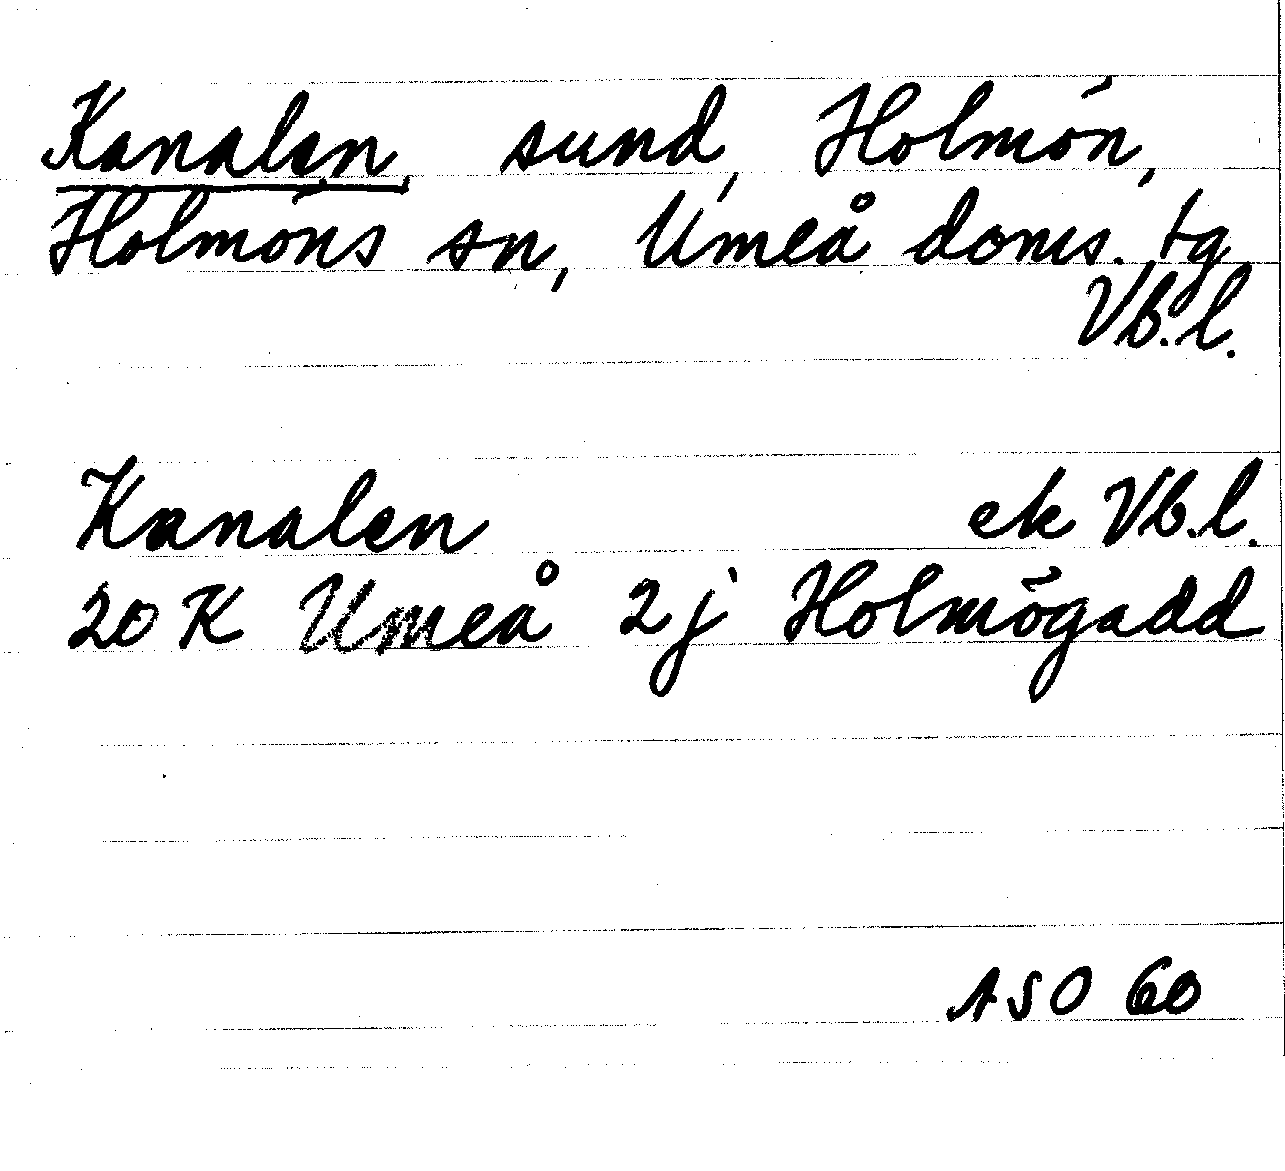 Kanalen, sund, Holmön,
Holmöns sn, Umeå doms. tg
Vb.l.
Kanalen ek Vb.l.
20 K Umeå 2j Holmögadd
ASO 60